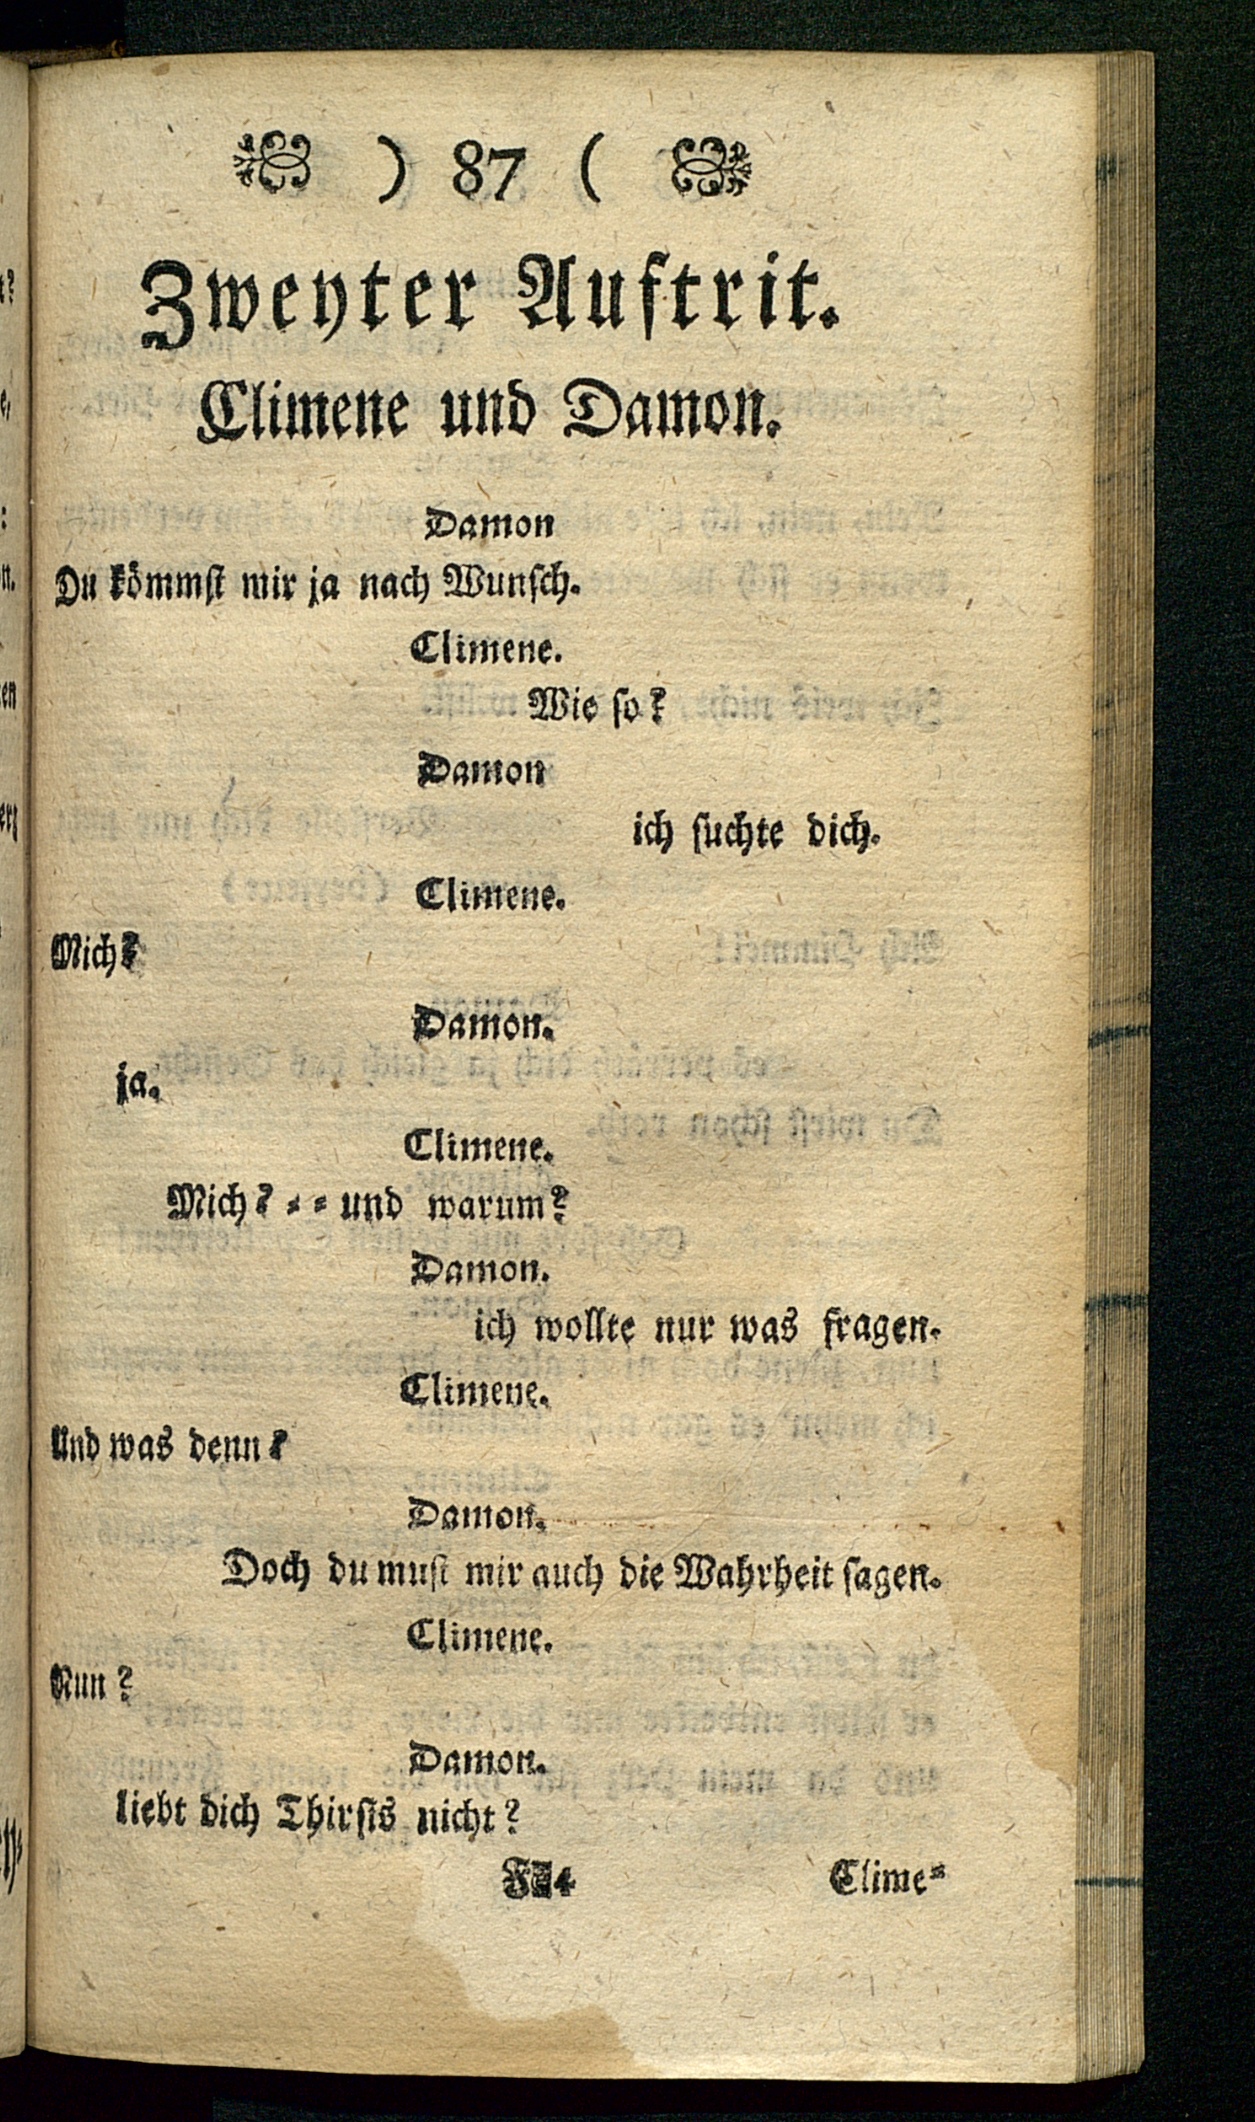 ) 87 (
Zweyter Auftrit.
Climene und Damon.
Damon
Du kömmſt mir ja nach Wunſch.
Climene.
Wie ſo?
Damon
ich ſuchte dich.
Climene.
Mich?
Damon.
ja.
Climene.
Mich? = = und warum?
Damon.
ich wollte nur was fragen.
Climene.
Und was denn?
Damon.
Doch du muſt mir auch die Wahrheit ſagen.
Climene.
Nun?
Damon.
liebt dich Thirſis nicht?
F 4 Clime=